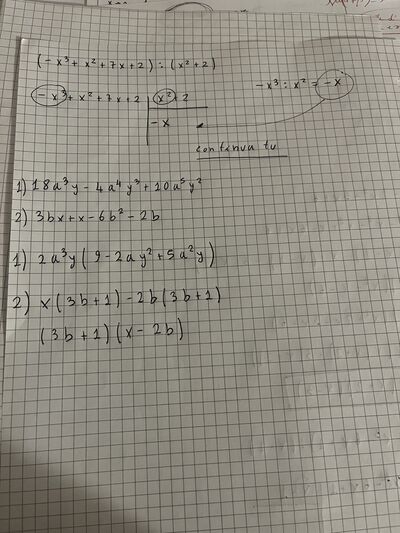 (-x³ + x² + 7x + 2) : (x² + 2)
-x³ : x² = -x
-x³ + x² + 7x + 2 | x² + 2
-x
continua tu
1) 18a³y - 4a⁴y³ + 10a⁵y²
2) 3bx + x - 6b² - 2b
1) 2a³y (9 - 2ay² + 5a²y)
2) x(3b + 1) - 2b(3b + 1)
(3b + 1) (x - 2b)